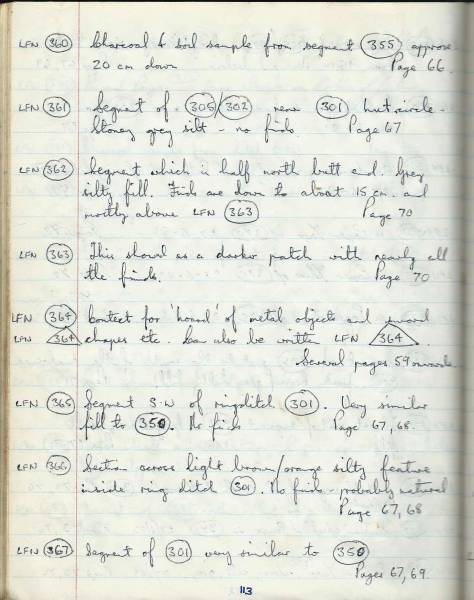 LFN 360 Charcoal & soil sample from segment 355 approx
20 cm down Page 66.
LFN 361 Segment of 305/302 near 301 hut circle.
Stoney grey silt - no finds. Page 67
LFN 362 Segment which is half north butt end. Grey
silty fill. Finds are down to about 15 cm. and
mostly above LFN 363 Page 70
LFN 363 This showed as a darker patch with nearly all
the finds. Page 70
LFN 364 Context for 'hoard' of metal objects and sword
LFN 364 chapes etc. Can also be written LFN 364.
Several pages 59 onwards.
LFN 365 Segment S.W of ringditch 301. Very similar
fill to 350. No finds Page 67, 68.
LFN 366 Section across light brown/orange silty feature
inside ring ditch 301. No finds - probably natural
Page 67, 68
LFN 367 Segment of 301 very similar to 350
Pages 67, 69.
113